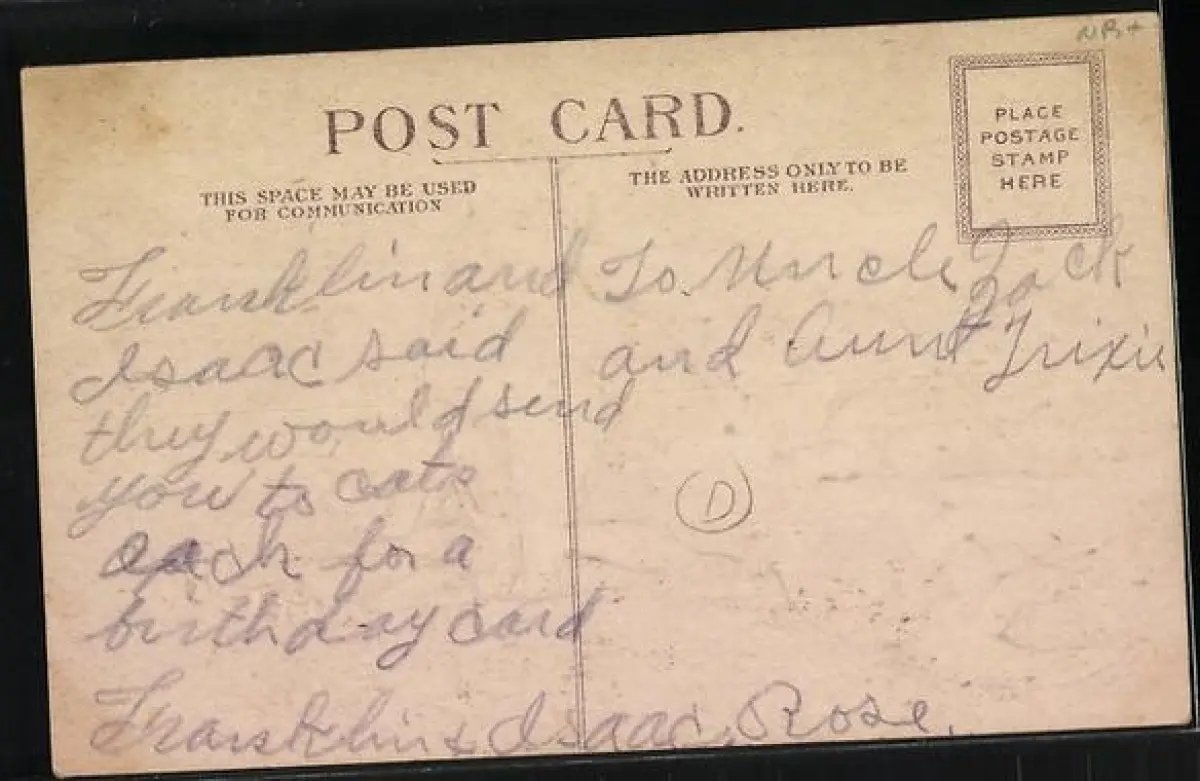 NB+
POST CARD.
PLACE
POSTAGE
STAMP
HERE
THIS SPACE MAY BE USED
FOR COMMUNICATION
THE ADDRESS ONLY TO BE
WRITTEN HERE.
Franklin and
Isaac said
they would send
you to cats
each for a
birthday card
Franklin & Isaac Rose.
To Uncle Jack
and Aunt Trixie
D